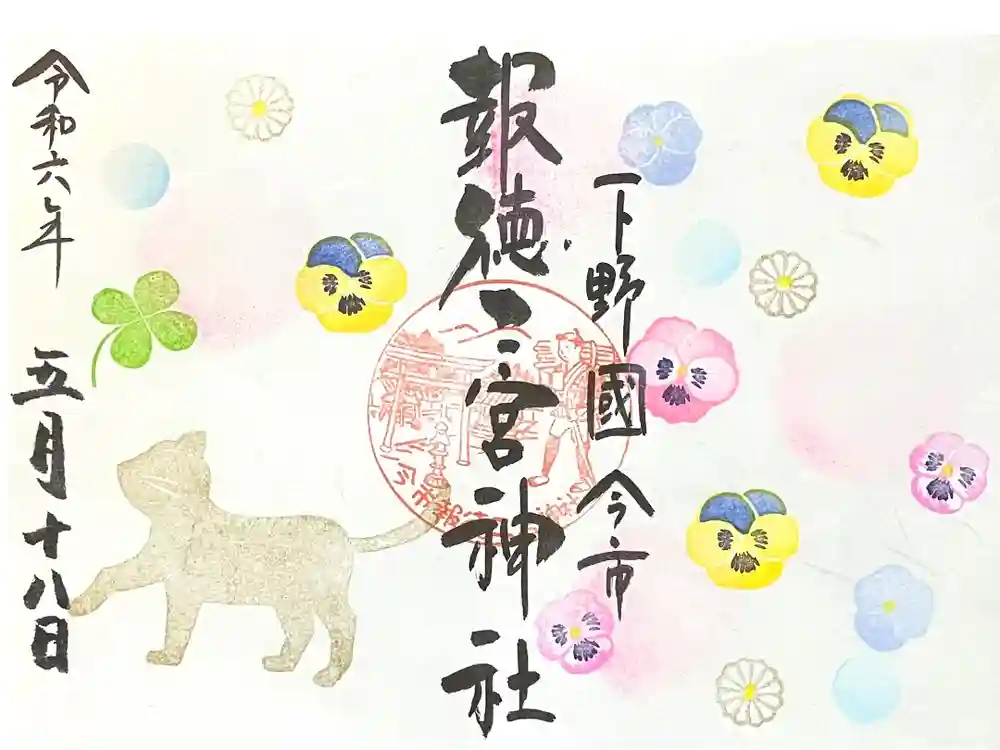 下野國 今市
報徳二宮神社
令和六年 五月十八日